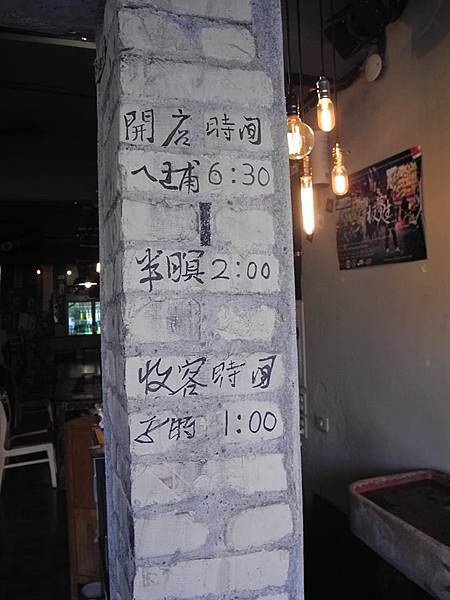 開店時間
ㄟ埔 6:30
|
半暝 2:00
收客時間
子時 1:00